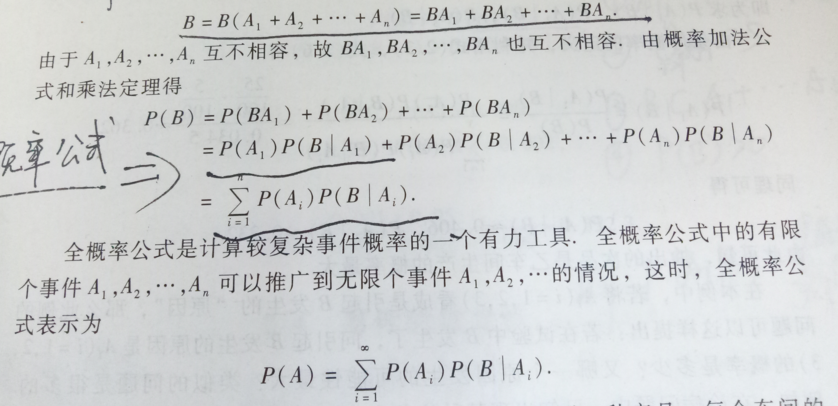 B = B(A₁ + A₂ + ⋯ + Aₙ) = BA₁ + BA₂ + ⋯ + BAₙ.
由于 A₁,A₂,⋯,Aₙ 互不相容，故 BA₁,BA₂,⋯,BAₙ 也互不相容. 由概率加法公
式和乘法定理得
P(B) = P(BA₁) + P(BA₂) + ⋯ + P(BAₙ)
= P(A₁)P(B | A₁) + P(A₂)P(B | A₂) + ⋯ + P(Aₙ)P(B | Aₙ)
率公式
= ∑ᵢ₌₁ⁿ P(Aᵢ)P(B | Aᵢ).
全概率公式是计算较复杂事件概率的一个有力工具. 全概率公式中的有限
个事件 A₁,A₂,⋯,Aₙ 可以推广到无限个事件 A₁,A₂,⋯的情况，这时，全概率公
式表示为
P(A) = ∑ᵢ₌₁^∞ P(Aᵢ)P(B | Aᵢ).